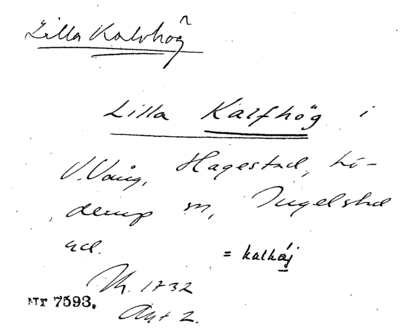 Lilla Kalvhög
Lilla Kalfhög i
V. Vång, Hagestad, Lö-
derup m, Ingelstad
hd.
= kalhåj
Nr 7593. 1732
Akt 2.